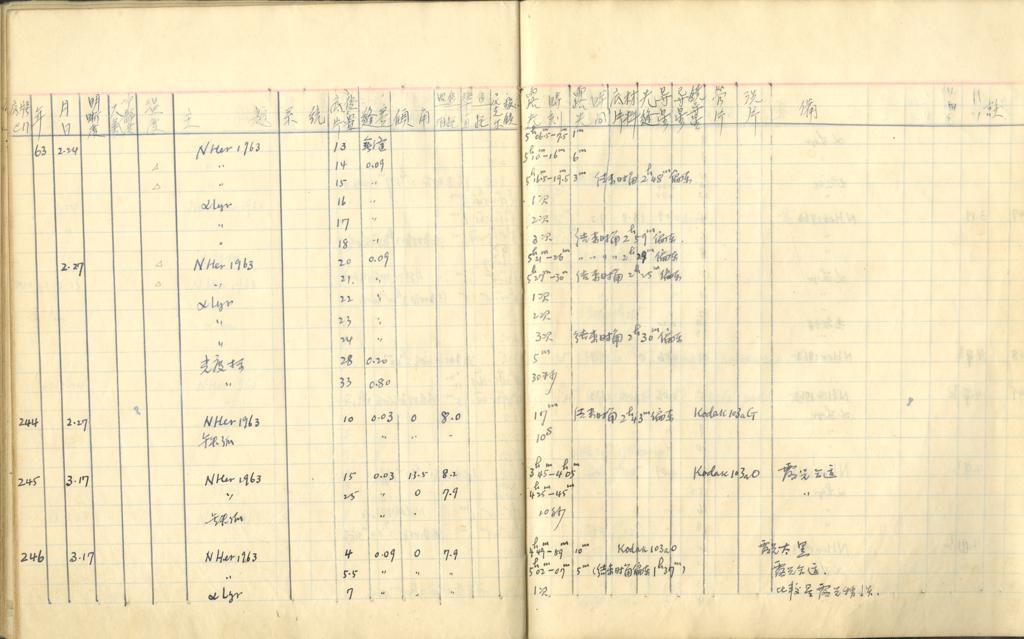 年 月日 主 题 系 统 底片 倾角 露光时刻 露光时间 底片材料 备 註
63 2.24 NHer 1963 13 5ʰ06.5-7.5 1ᵐ
" 14 0.09 5ʰ10-16ᵐ 6ᵐ
" 15 " 5ʰ16.5-19.5 3ᵐ 结束时角2ʰ48ᵐ偏东
αLyr 16 " 1次
" 17 " 2次
" 18 " 3次 结束时角2ʰ59ᵐ偏东.
2.27 NHer 1963 20 0.09 5ʰ21-26ᵐ " " " " 2ʰ29ᵐ偏东
" 21. " 5ʰ27-30ᵐ 结束时角2ʰ25ᵐ偏东
αLyr 22 " 1次
" 23 " 2次
" 24 " 3次 结束时角2ʰ30ᵐ偏东
光度标 28 0.20 5ᵐ
" 33 0.80 30秒
244 2.27 NHer 1963 10 0.03 0 8.0 17ᵐ 结束时角2ʰ43ᵐ偏东 Kodak 103aG
" " " 10ˢ
245 3.17 NHer 1963 15 0.03 13.5 8.2 3ʰ45ᵐ-4ʰ05ᵐ Kodak 103aO 露光合适
" 25 " 0 7.9 4ʰ25-45ᵐ "
" " 10秒
246 3.17 NHer 1963 4 0.09 0 7.9 4ʰ49-59ᵐ 10ᵐ Kodak 103aO 露光大 黑
" 5.5 " " " 5ʰ02-07ᵐ 5ᵐ (结束时角偏东1ʰ37ᵐ) 露光合适.
αLyr 7 " " " 1次 比较星露光